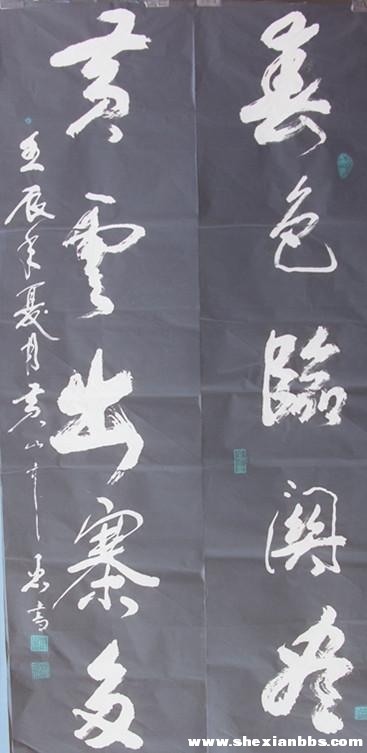 春色臨關盡
黄雲出寨多
壬辰年夏月黄山 書
www.shexianbbs.com